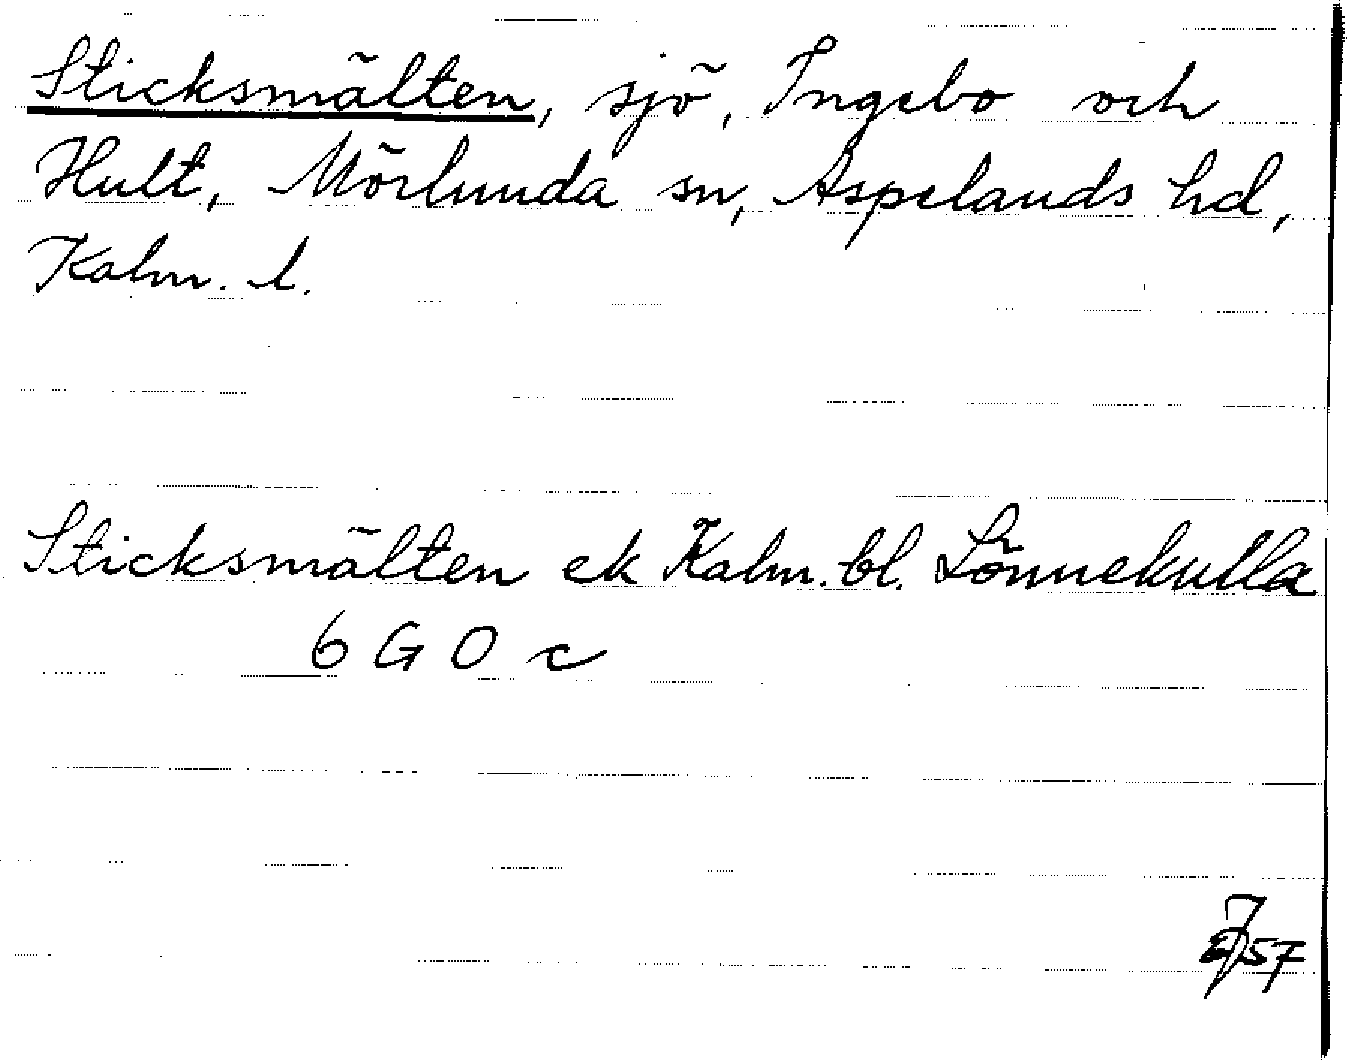 Sticksmälten, sjö, Ingebo och
Hult, Mörlunda sn, Aspelands hd,
Kalm. l.
Sticksmälten ek Kalm. bl. Lönnekulla
6 G 0 c
57